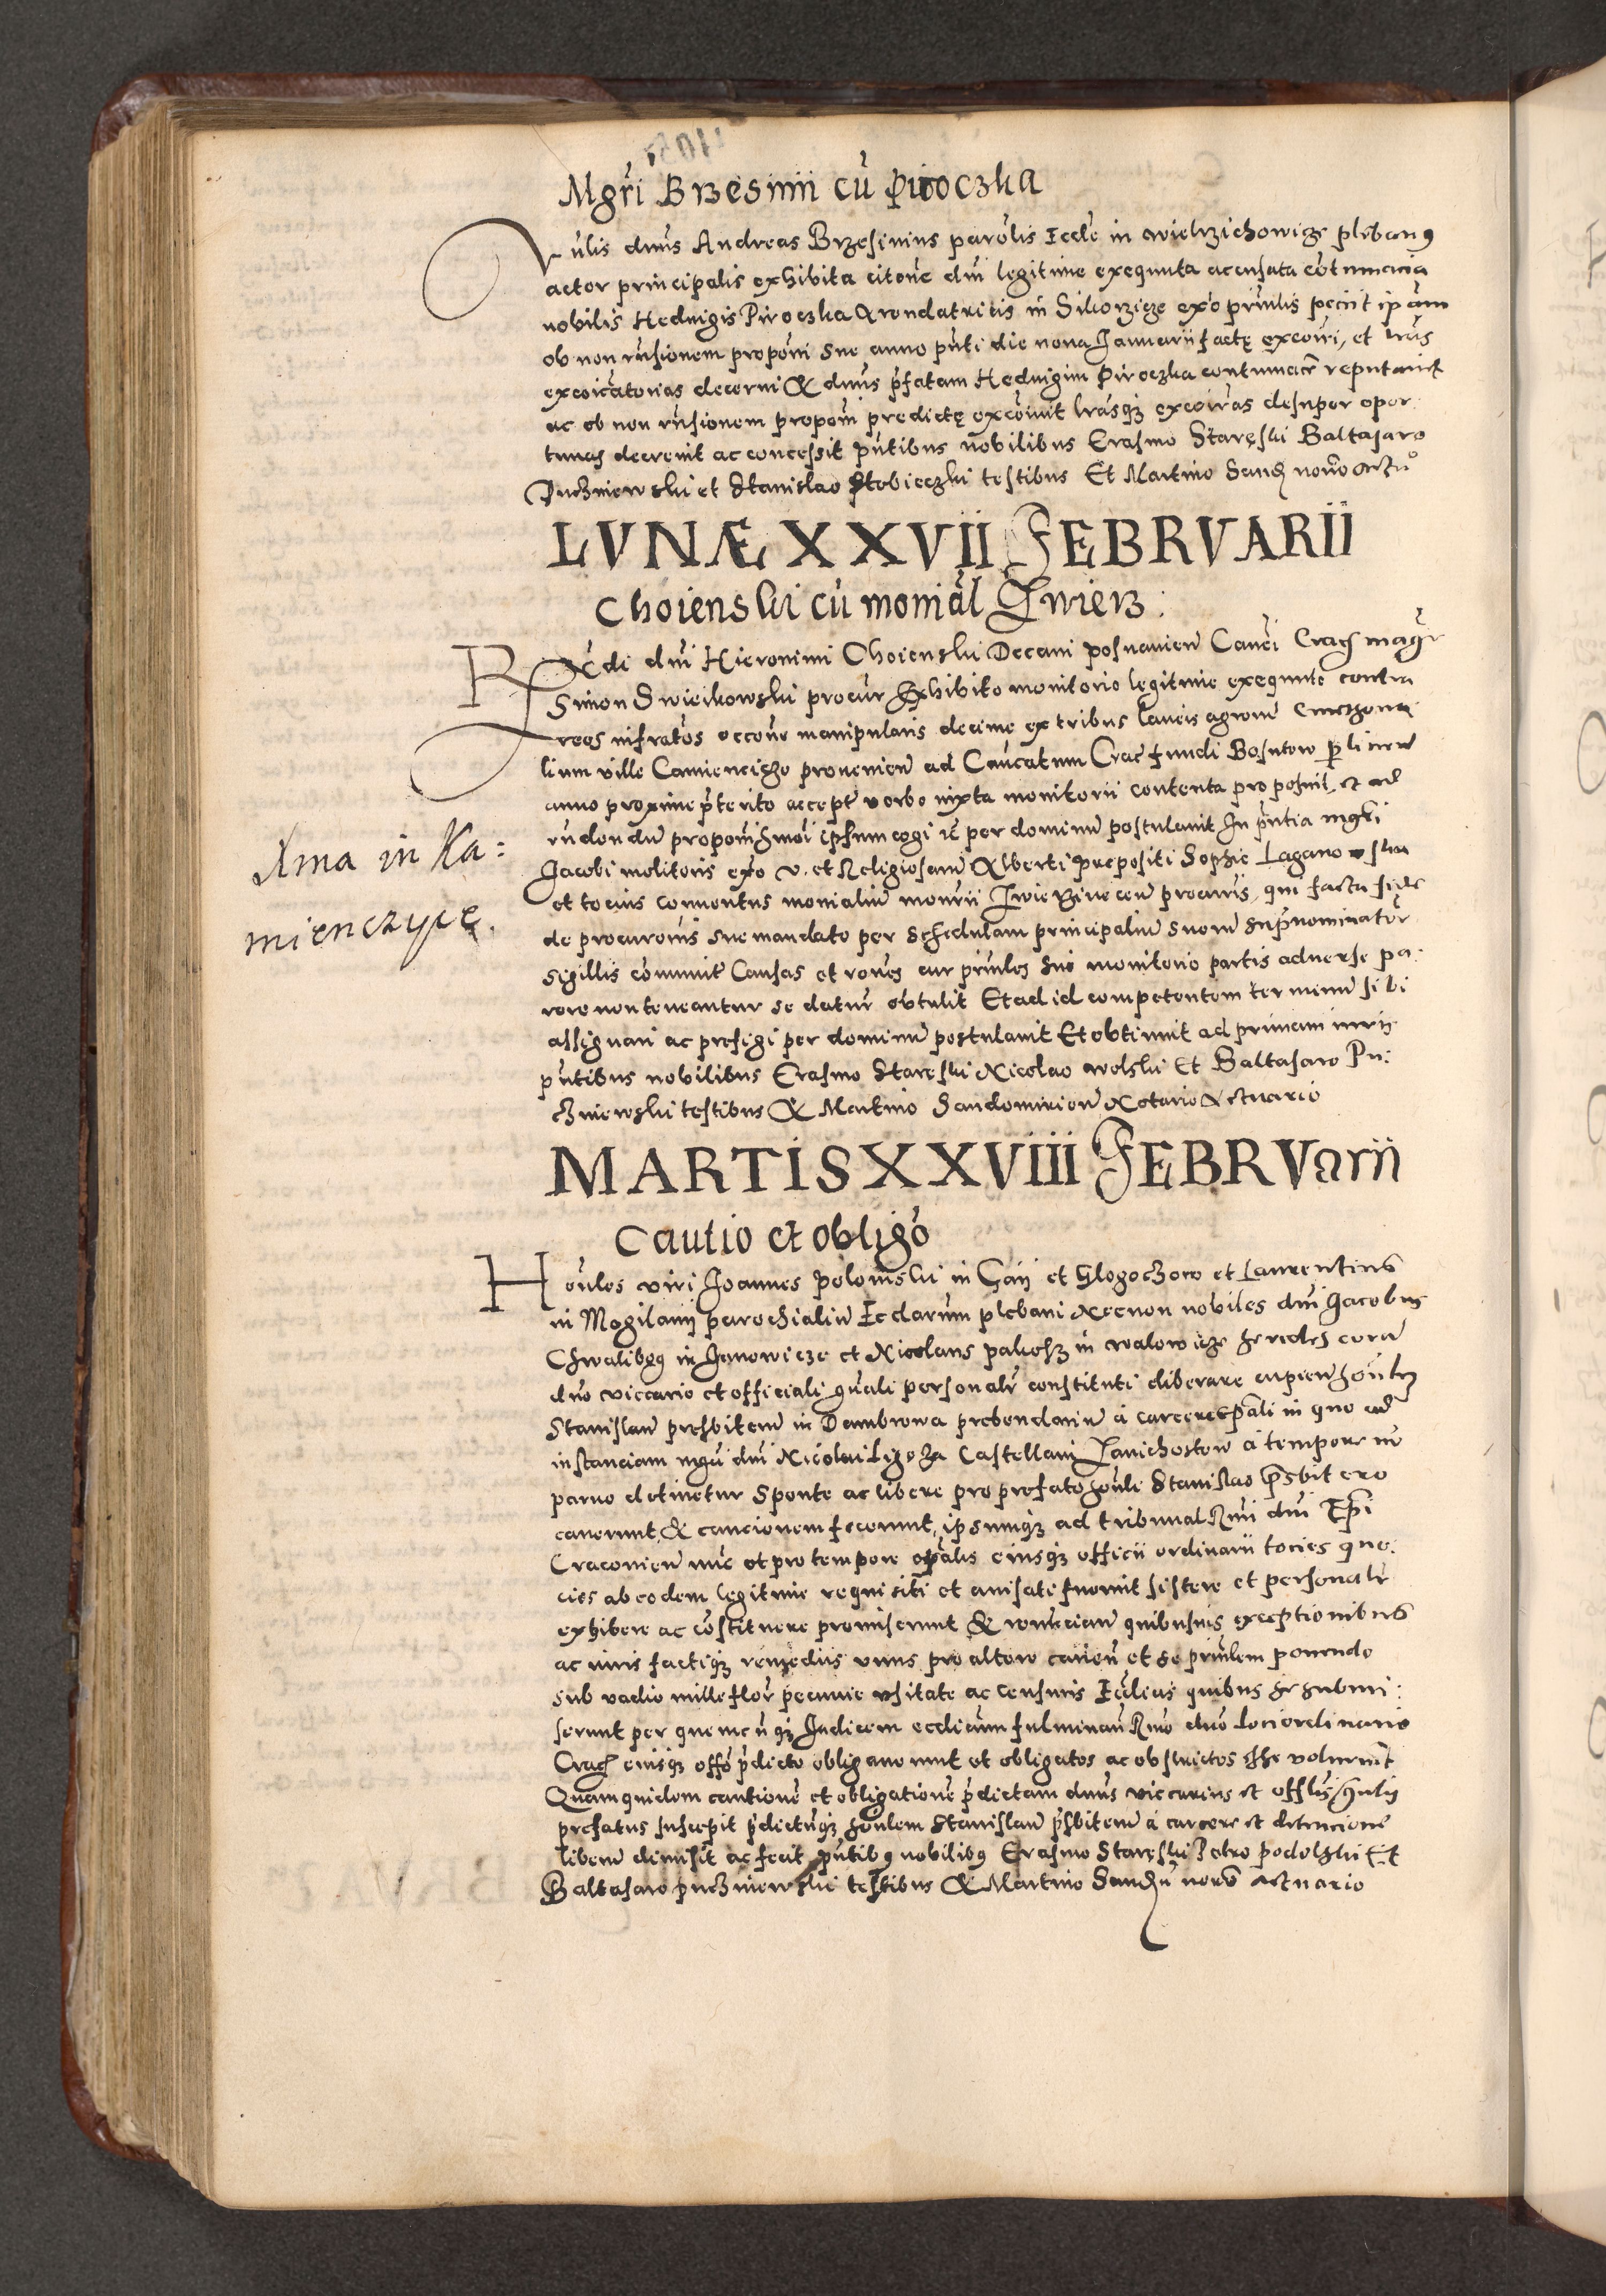 Mgri Brzesinii cũ Piroczka
Vnlis dnus Andreas Brzesinius parolis Eccle in Wielrzichowicze plebanus
actor principalis exhibita citone dni legitime exequuta accusata cõtumacia
nobilis Hedvigis Piroczka Arendatricis in Sikorzicze exõ prinlis peciit ipsam
ob non rusionem proponi sue anno pnti die nona Januarii factę excoiri, et lras
excoicatorias decerni & dnus pfatam Hedvigim Piroczka contumacē reputavit
ac ob non rusionem proponi predictę excõivit lrasqz excoiras desuper opor:
tunas decrevit ac concessit pntibus nobilibus Erasmo Staręski Baltasaro
Puczniewski et Stanislao Stobieczki testibus Et Martino Send norio actuo
LVNÆ XXVII FEBRVARII
Choienski cũ monial Zwierz:
Rndi dni Hieronimi Choienski Decani posnanien Canci Crac magr
Simon Dwieikowski procur Exhibito monitorio legitime exequuto contra
reos infratos occone manipularis decime ex tribus laneis agrorum cmethona
lium ville Camiencicze provenien ad Cancatum Crac fundi Bosutow p linew
anno proxime pterito accept verbo iuxta monitorii contenta proposuit, et ad
rndendum proponi hmoi ipsum cogi &c per dominum postulavit In pntia mgri
Jacobi molitoris exõ v. et Religiosarum Alberti prepositi Sophie Laganowska
et tocius conventus monialium monrii Zwierzinecen procuris, qui facta fide
de procuronis sue mandato per schedulam principalium suorum supnominator
sigillis cõmunit Causas et rones cur prinles sui monitorio partis adverse pa:
rere non teneantur se datur obtulit Et ad id competentem terminum sibi
assignari ac prefigi per dominum postulavit Et obtinuit ad primam iuris
pntibus nobilibus Erasmo Staręski Nicolao Wolski Et Baltasaro Pu:
czniewski testibus & Martino Sandomirien Notario Actuario
Xma in Ka:
mienczyce.
MARTIS XXVIII FEBRVarii
Cautio et obligo
Honles viri Joannes Polomski in Gaii et Glogoczow et Laurentius
in Mogilani parochialium Eccliarum plebani Necnon nobiles dni Jacobus
Chwalibog in Janowicze et Nicolaus paliohz in Walowicze heredes coram
dno viccario et officiali gnali personalr constituti liberare cupien honlem
Stanislaum presbiterum in Dambrowa prebendarium à carcere epali in quo ad
instanciam mgci dni Nicolai Ligoza Castellani Zavichostow à tempore nõ
parvo detinetur Sponte ac libere pro prefato honli Stanislao psbitero
caverunt & caucionem fecerunt, ipsumqz ad tribunal Rmi dni Epi
Cracovien nunc et pro tempore epalis eiusqz officii ordinarii tocies quo:
cies ab eodem legitime requisiti et avisati fuerint sistere et personalr
exhibere ac cõstituere promiserunt & renuncian quibusvis exceptionibus
ac iuris factiqz remediis unus pro altero caven et se prinlem ponendo
sub vadio mille flor pecunie usitate ac censuris Eccleias quibus se submi:
serunt per quemcũqz Judicem eccleicum fulminan Rmo dno Loci ordinario
Crac eiusqz offo pdicto obligaverunt et obligatos ac obstrictos esse voluerunt
Quamquidem cautionē et obligationē pdictam dnus viccarius et offlis gnalis
prefatus suscepit pdictũqz honlem Stanislaum psbiterum à carcere et detencione
liberum dimisit ac fecit pntibus nobilibus Erasmo Staręski Petro podolski Et
Baltasaro puczniewski testibus & Martino Sandn norio Actuario